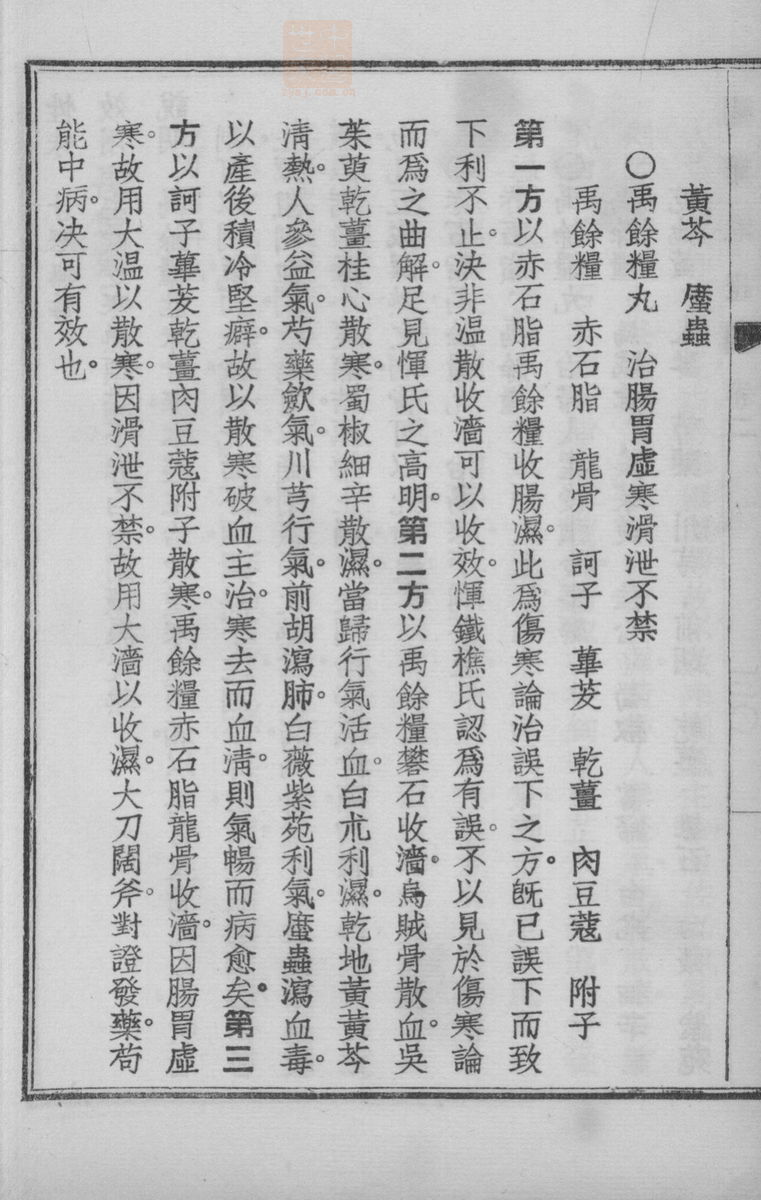 黃芩　䗪蟲
○禹餘糧丸　治腸胃虛寒滑泄不禁
禹餘糧　赤石脂　龍骨　訶子　蓽茇　乾薑　肉豆蔻　附子
第一方以赤石脂禹餘糧收腸濕。此爲傷寒論治誤下之方。既已誤下而致
下利不止。決非温散收濇可以收效。惲鐵樵氏認爲有誤。不以見於傷寒論
而爲之曲解。足見惲氏之高明。第二方以禹餘糧礬石收濇。烏賊骨散血。吳
茱萸乾薑桂心散寒。蜀椒細辛散濕。當歸行氣活血。白朮利濕。乾地黃黃芩
清熱。人參益氣。芍藥歛氣。川芎行氣。前胡瀉肺。白薇紫苑利氣。䗪蟲瀉血毒。
以產後積冷堅癖。故以散寒破血主治。寒去而血清。則氣暢而病愈矣。第三
方以訶子蓽茇乾薑肉豆蔻附子散寒。禹餘糧赤石脂龍骨收濇。因腸胃虛
寒。故用大温以散寒。因滑泄不禁。故用大濇以收濕。大刀闊斧。對證發藥。苟
能中病。决可有效也。